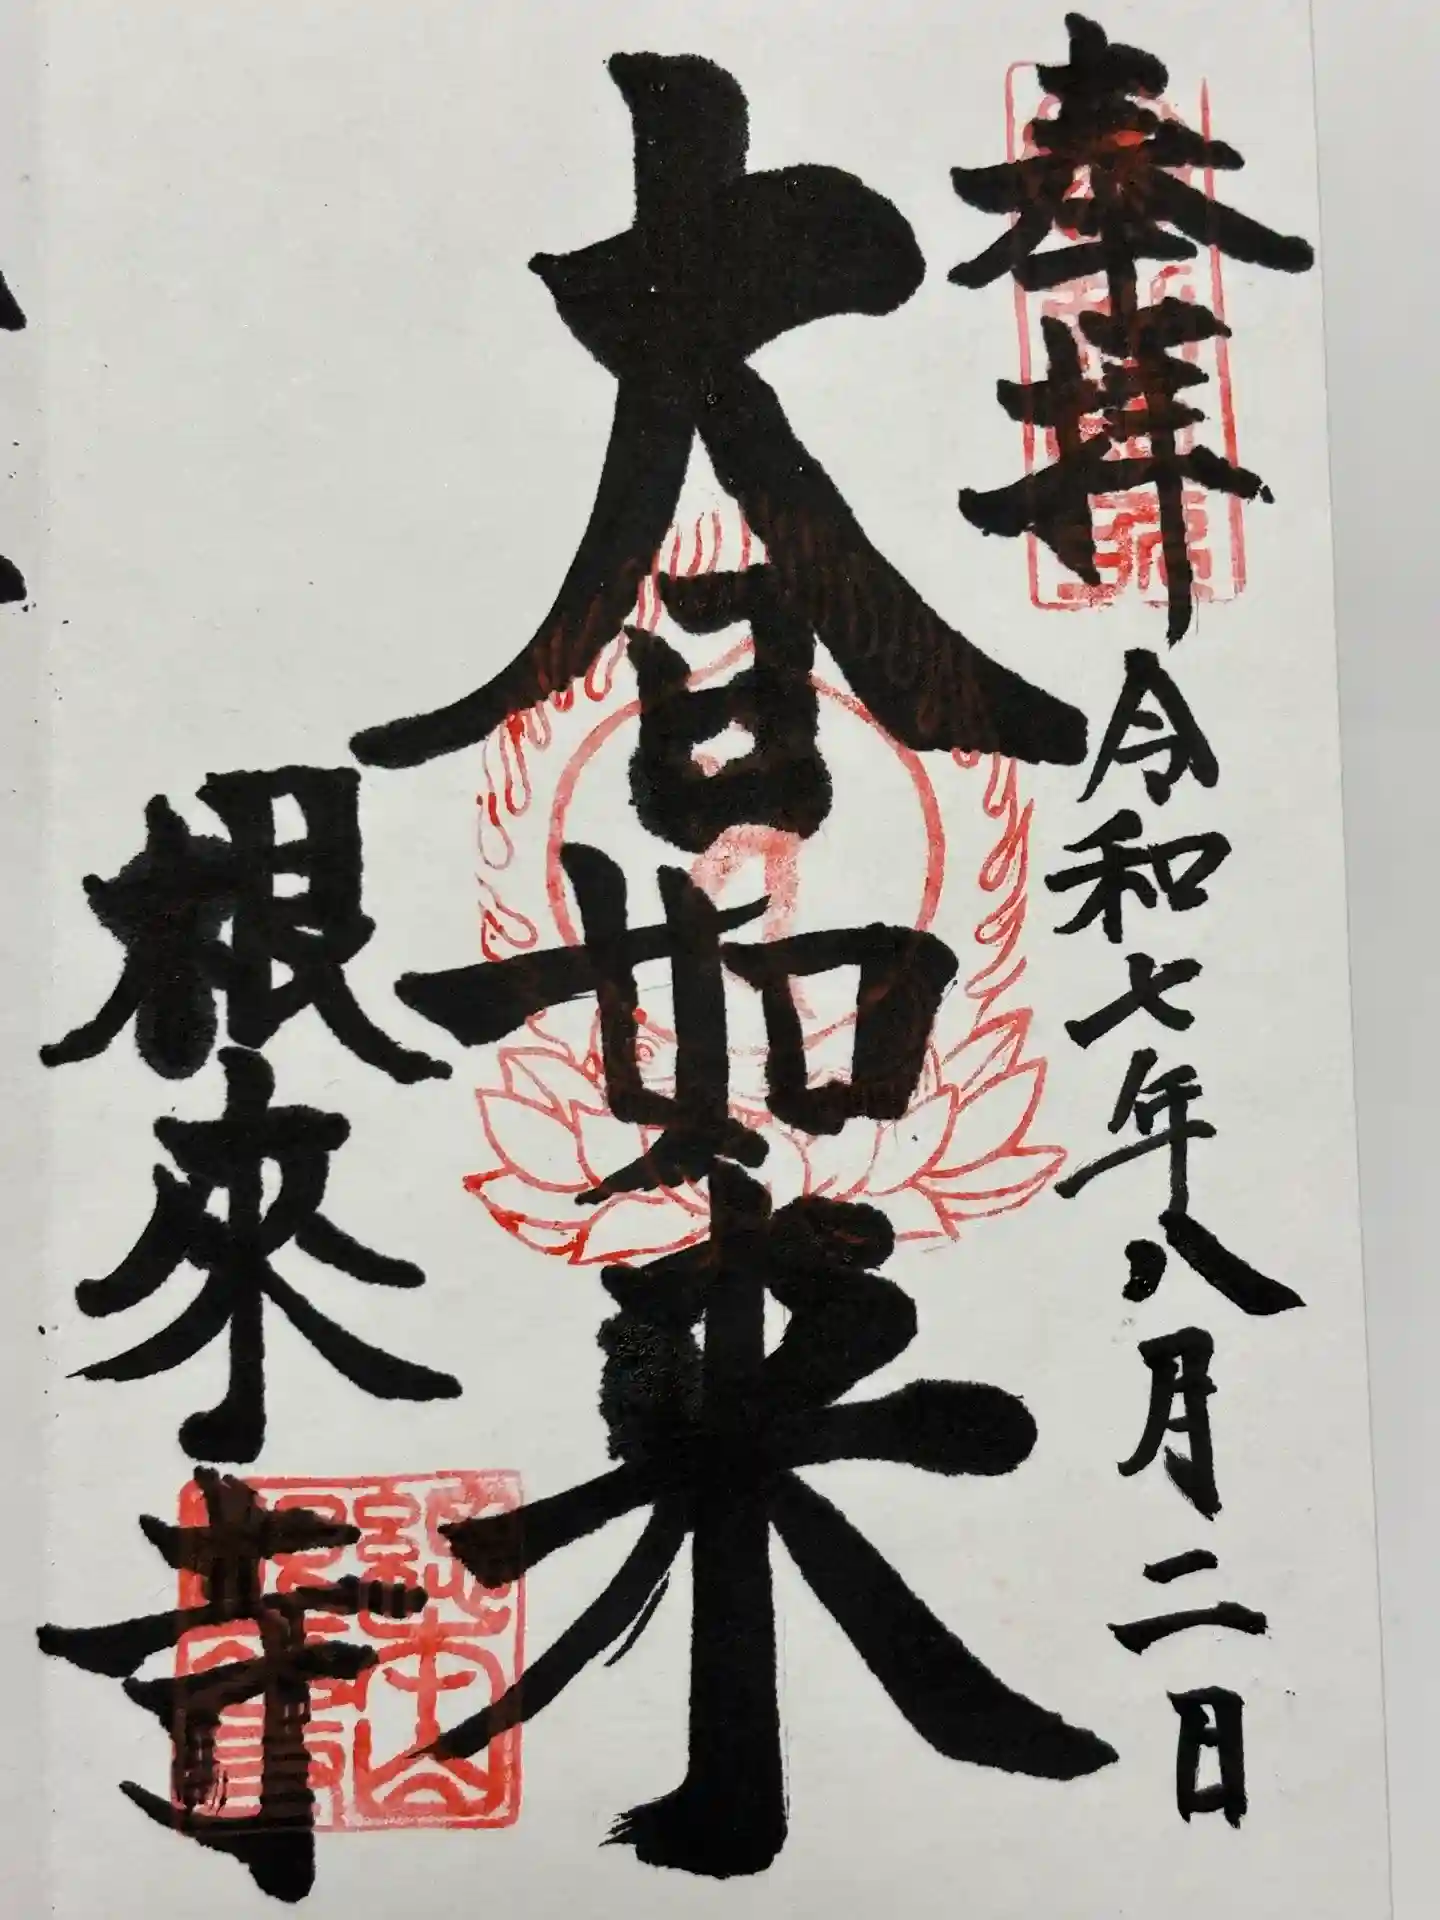 奉拝 令和七年八月二日
大日如来
根來寺